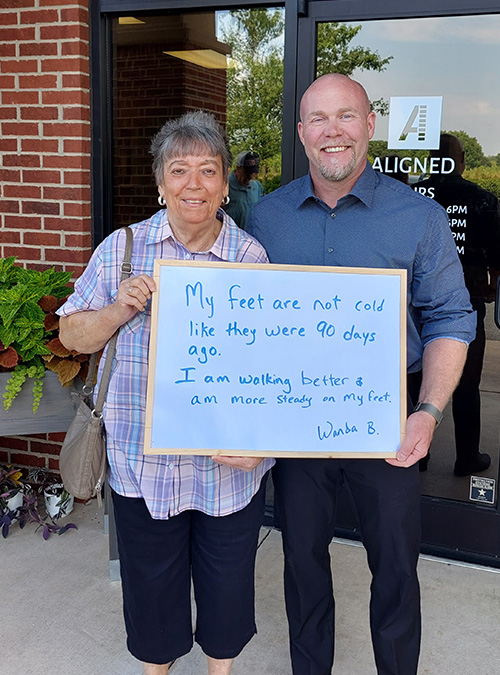 ALIGNED
6PM
PM
My feet are not cold
like they were 90 days
ago.
I am walking better &
am more steady on my feet.
Wanda B.